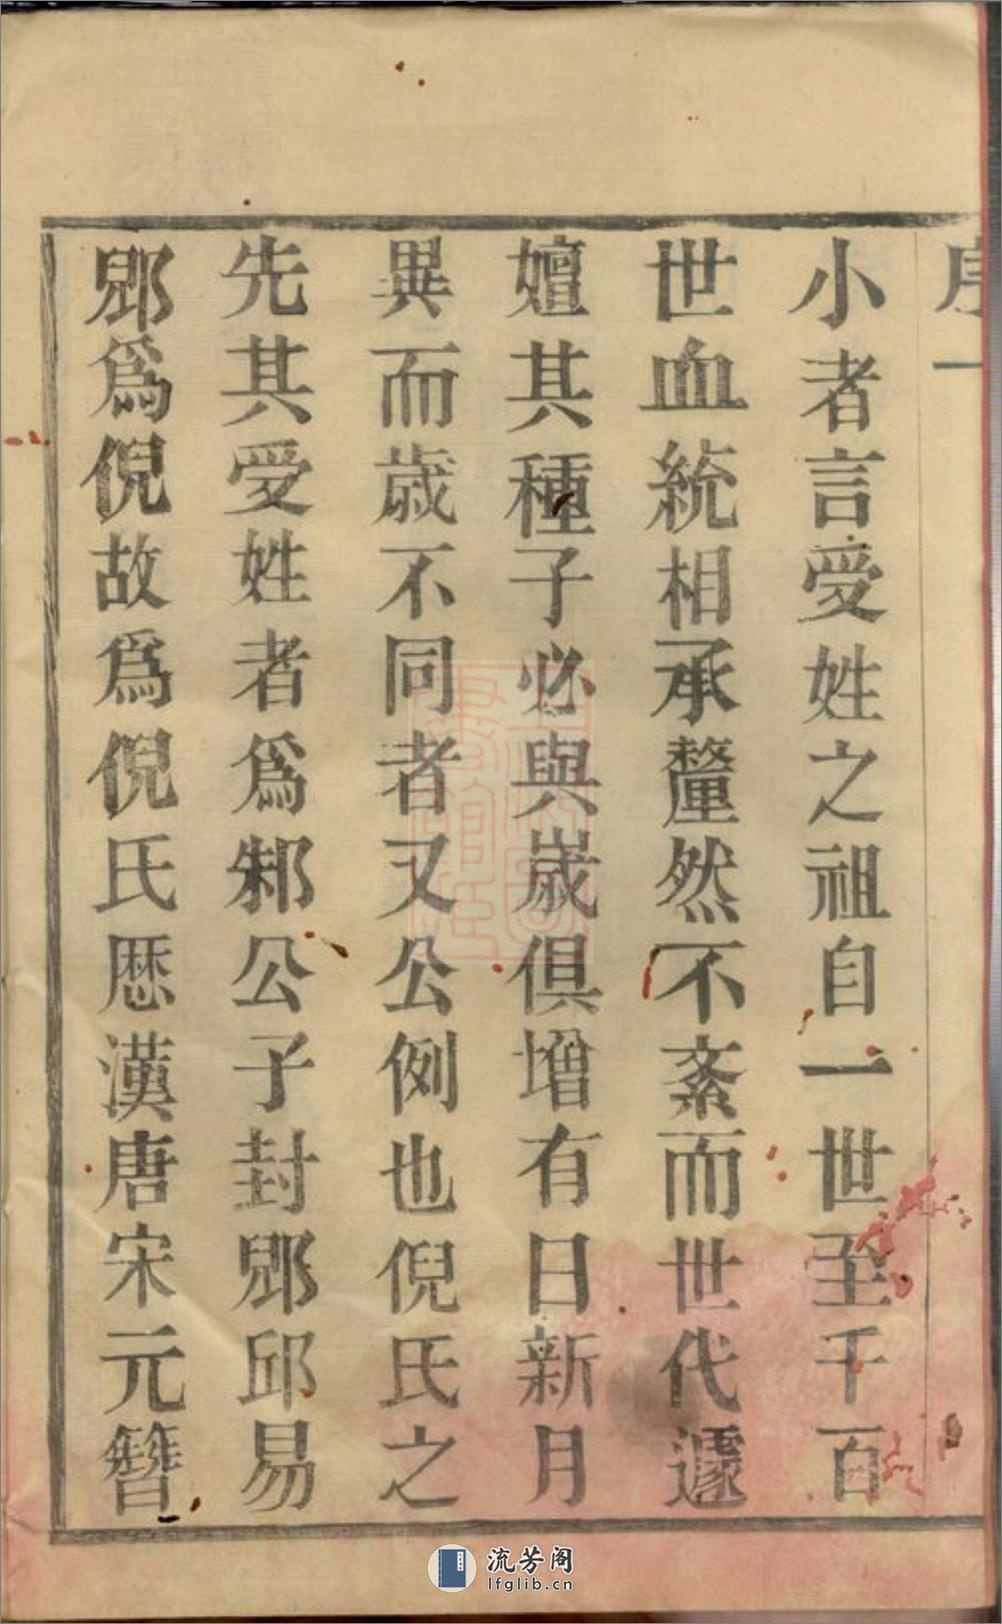 序一
小者言受姓之祖自一世至千百
世血統相承釐然不紊而世代遞
嬗其種子必與嵗俱增有日新月
異而歲不同者又公例也倪氏之
先其受姓者為邾公子封郳邱易
郳爲倪故爲倪氏厯漢唐宋元簪
流芳阁
lfglib.cn